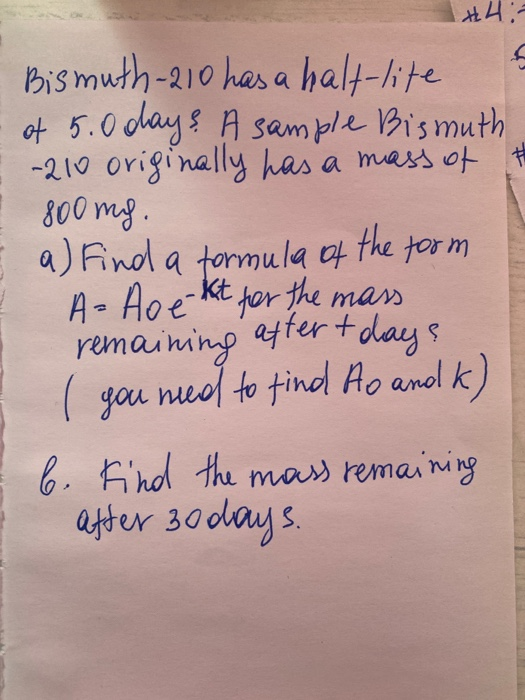 #4:
Bismuth-210 has a half-life
of 5.0 days. A sample Bismuth
-210 originally has a mass of
800 mg.
a) Find a formula of the form
A = A₀e^-Kt for the mass
remaining after t days
(you need to find A₀ and k)
b. Find the mass remaining
after 30 days.